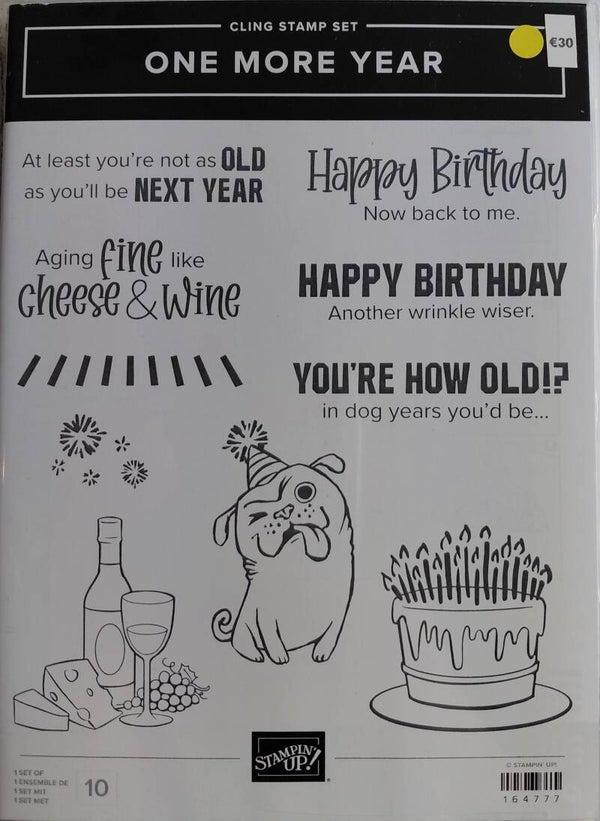 CLING STAMP SET
ONE MORE YEAR
€30
At least you're not as OLD
as you'll be NEXT YEAR
Happy Birthday
Now back to me.
Aging fine like
cheese & wine
HAPPY BIRTHDAY
Another wrinkle wiser.
YOU'RE HOW OLD!?
in dog years you'd be...
STAMPIN' UP!
1 SET OF
1 ENSEMBLE DE
1 SET MIT
1 SET MET
10
© STAMPIN' UP!
164777